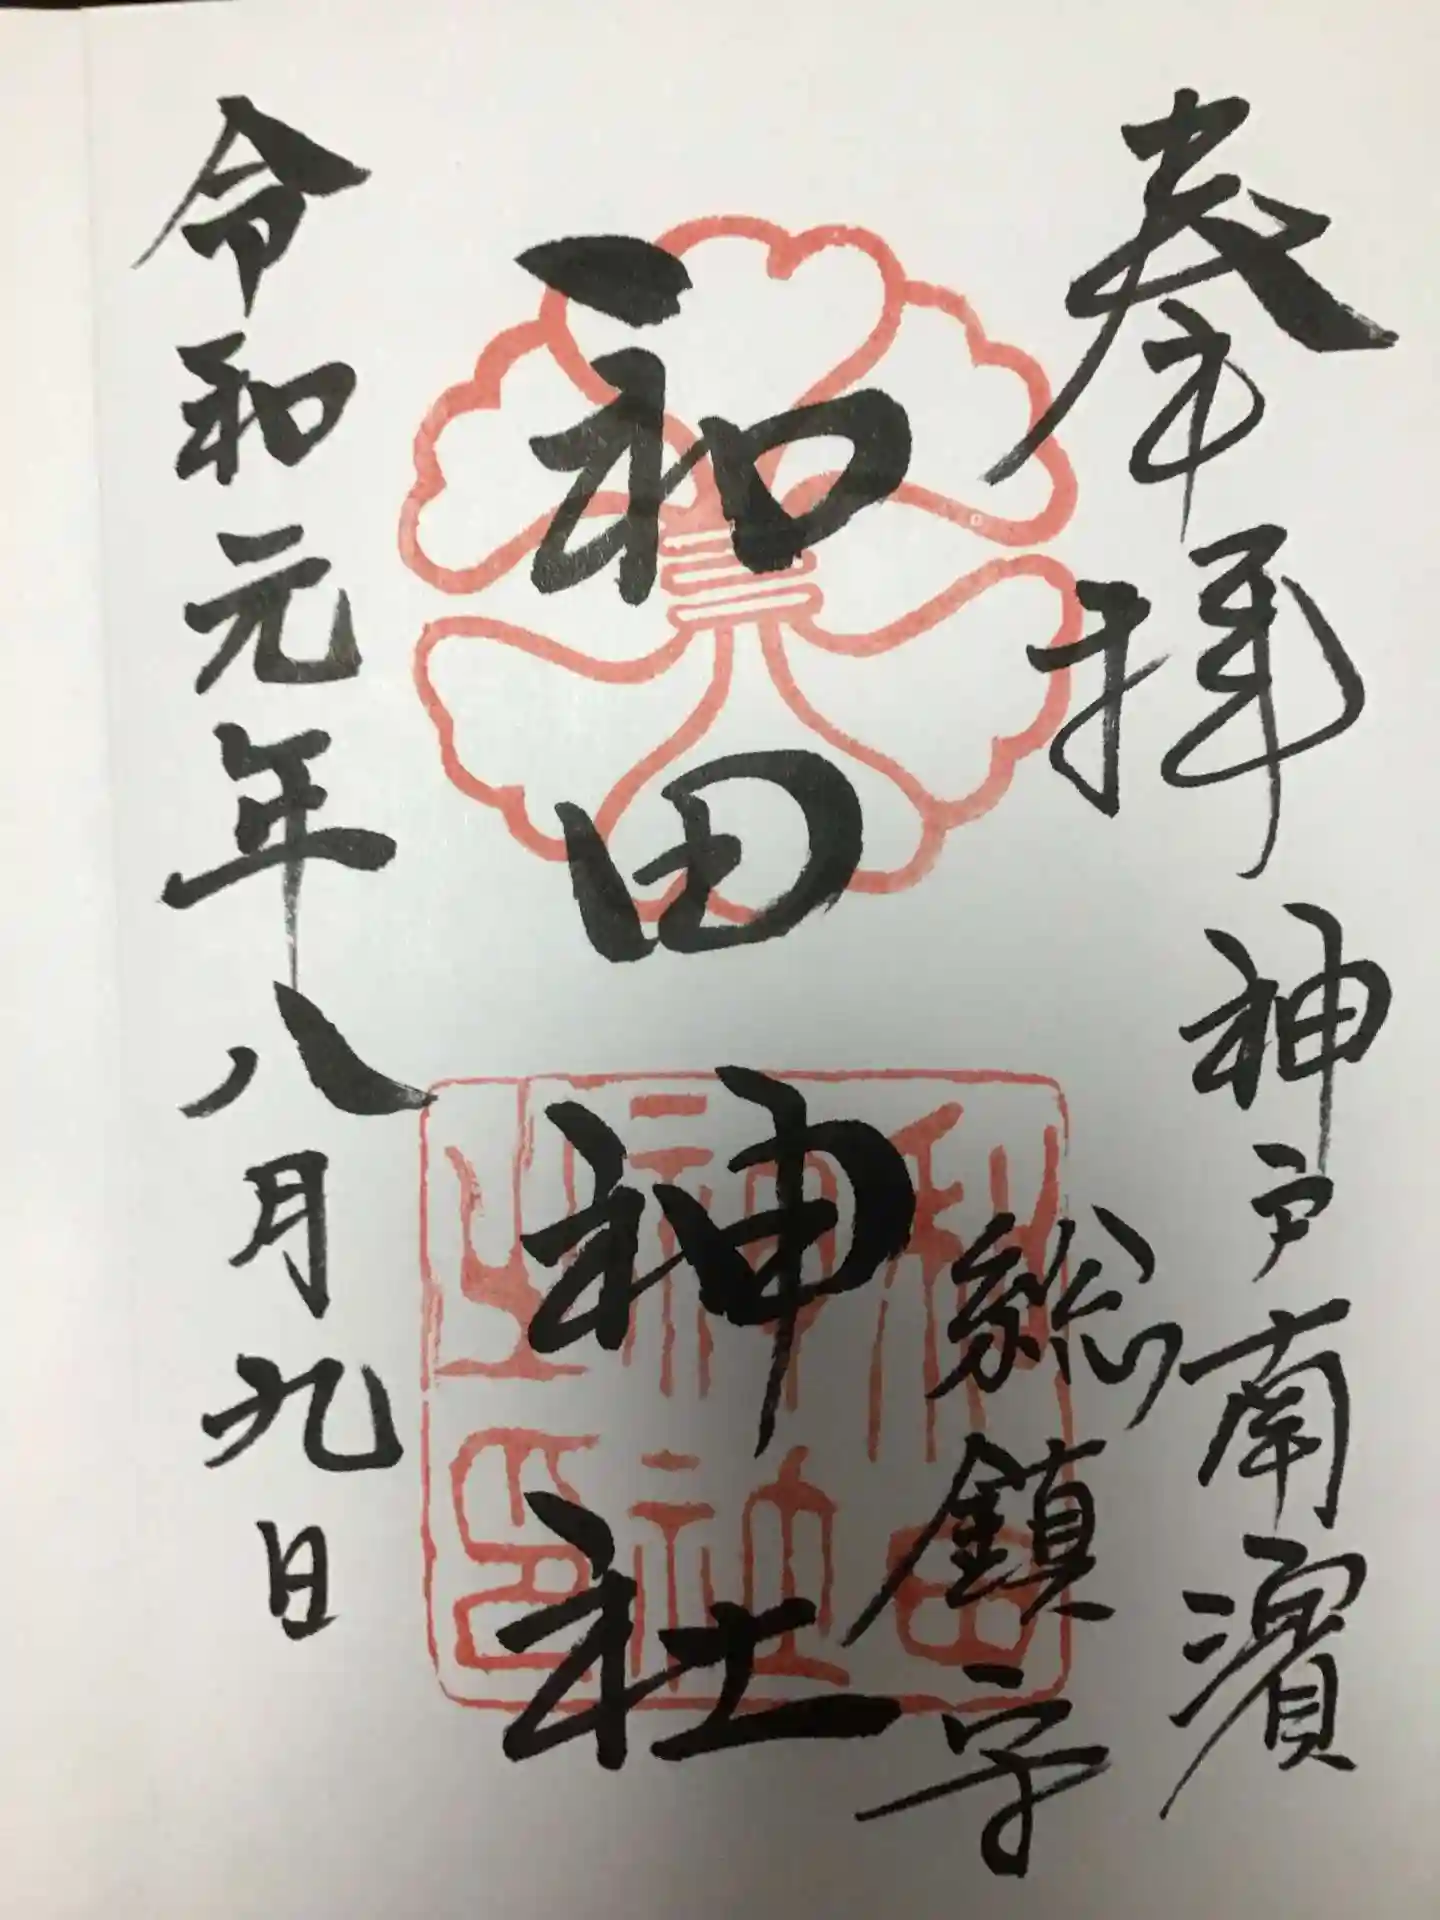 奉拝
神戸南濱
総鎮守
和田神社
和田
神社
之印
令和元年八月九日